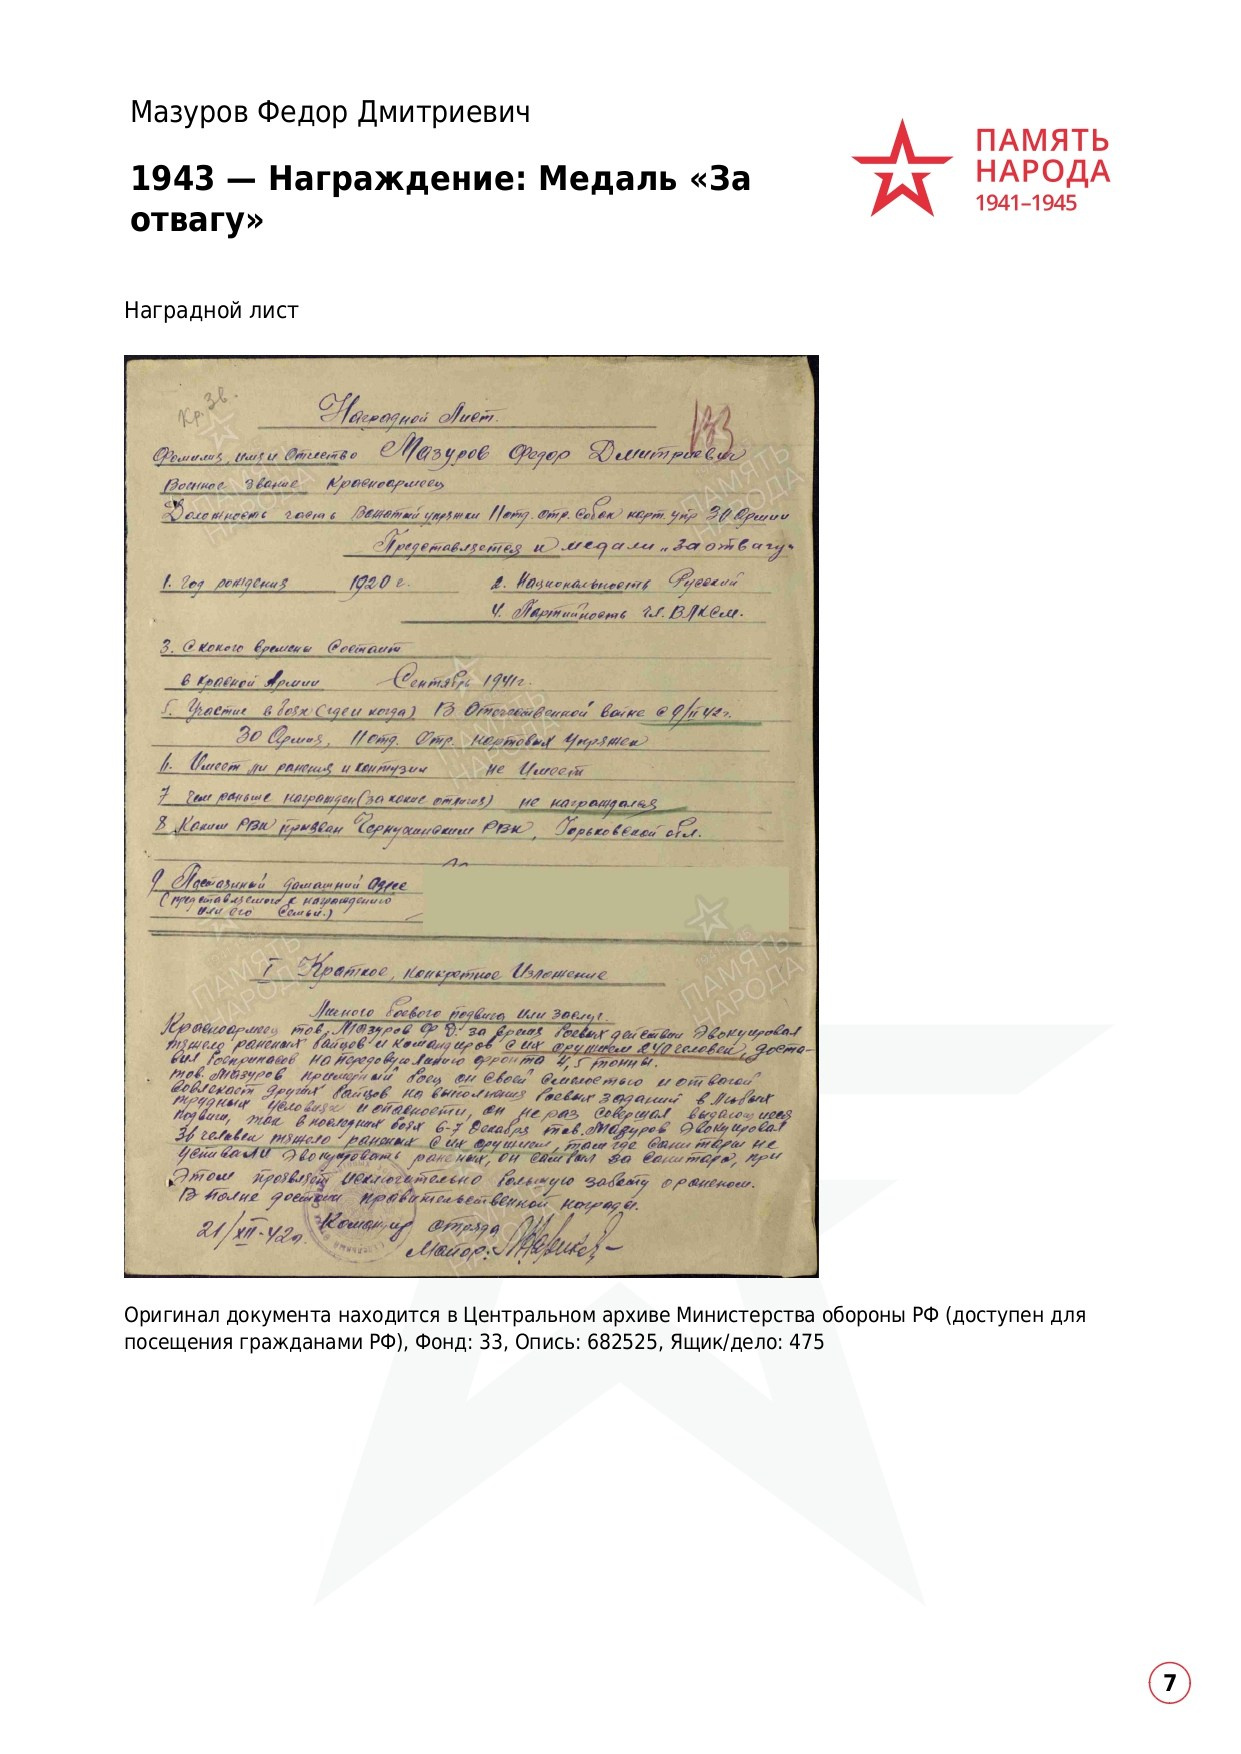 Мазуров Федор Дмитриевич
ПАМЯТЬ
НАРОДА
1941–1945
1943 — Награждение: Медаль «За
отвагу»
Наградной лист
Кр. Зв.
133
Наградной Лист.
Фамилия, имя и Отчество Мазуров Федор Дмитриевич
Военное звание Красноармеец
Должность часть Вожатый упряжки 11 отд. отр. собак нарт. упр 30 Армии
Представляется к медали „За отвагу"
1. Год рождения 1920 г. 2. Национальность Русский
4. Партийность чл. ВЛКСМ.
3. С какого времени Состоит
в Красной Армии Сентябрь 1941 г.
5. Участие в боях (где и когда) В Отечественной войне с 9/II 42 г.
30 Армия, 11 отд. Отр. нартовых Упряжек
6. Имеет ли ранения и контузии не Имеет
7 Чем раньше награжден (за какие отличия) не награждался
8 Каким РВК призван РВК, Горьковской обл.
9 Постоянный домашний Адрес
(представляемого к награждению
или его Семьи.)
I Краткое, конкретное Изложение
Личного боевого подвига или заслуг.
Красноармеец тов. Мазуров Ф. Д. за время боевых действий Эвакуировал
тяжело раненых бойцов и командиров с их оружием 240 человек, доста-
вил боеприпасов на передовую линию фронта 4,5 тонны.
тов. Мазуров примерный боец он своей смелостью и отвагой
вовлекает других бойцов на выполнения боевых заданий в Любых
трудных условиях и опасности, он не раз совершал выдающиеся
подвиги, так в последних боях 6-7 декабря тов. Мазуров Эвакуировал
36 человек тяжело раненых с их оружием, там где санитары не
успивали Эвакуировать раненых, он сам был за санитара, при
Этом проявляет исключительно большую заботу о раненом.
В полне достоин правительственной награды.
21/XII-42г. Командир отряда
Майор:
Оригинал документа находится в Центральном архиве Министерства обороны РФ (доступен для
посещения гражданами РФ), Фонд: 33, Опись: 682525, Ящик/дело: 475
7